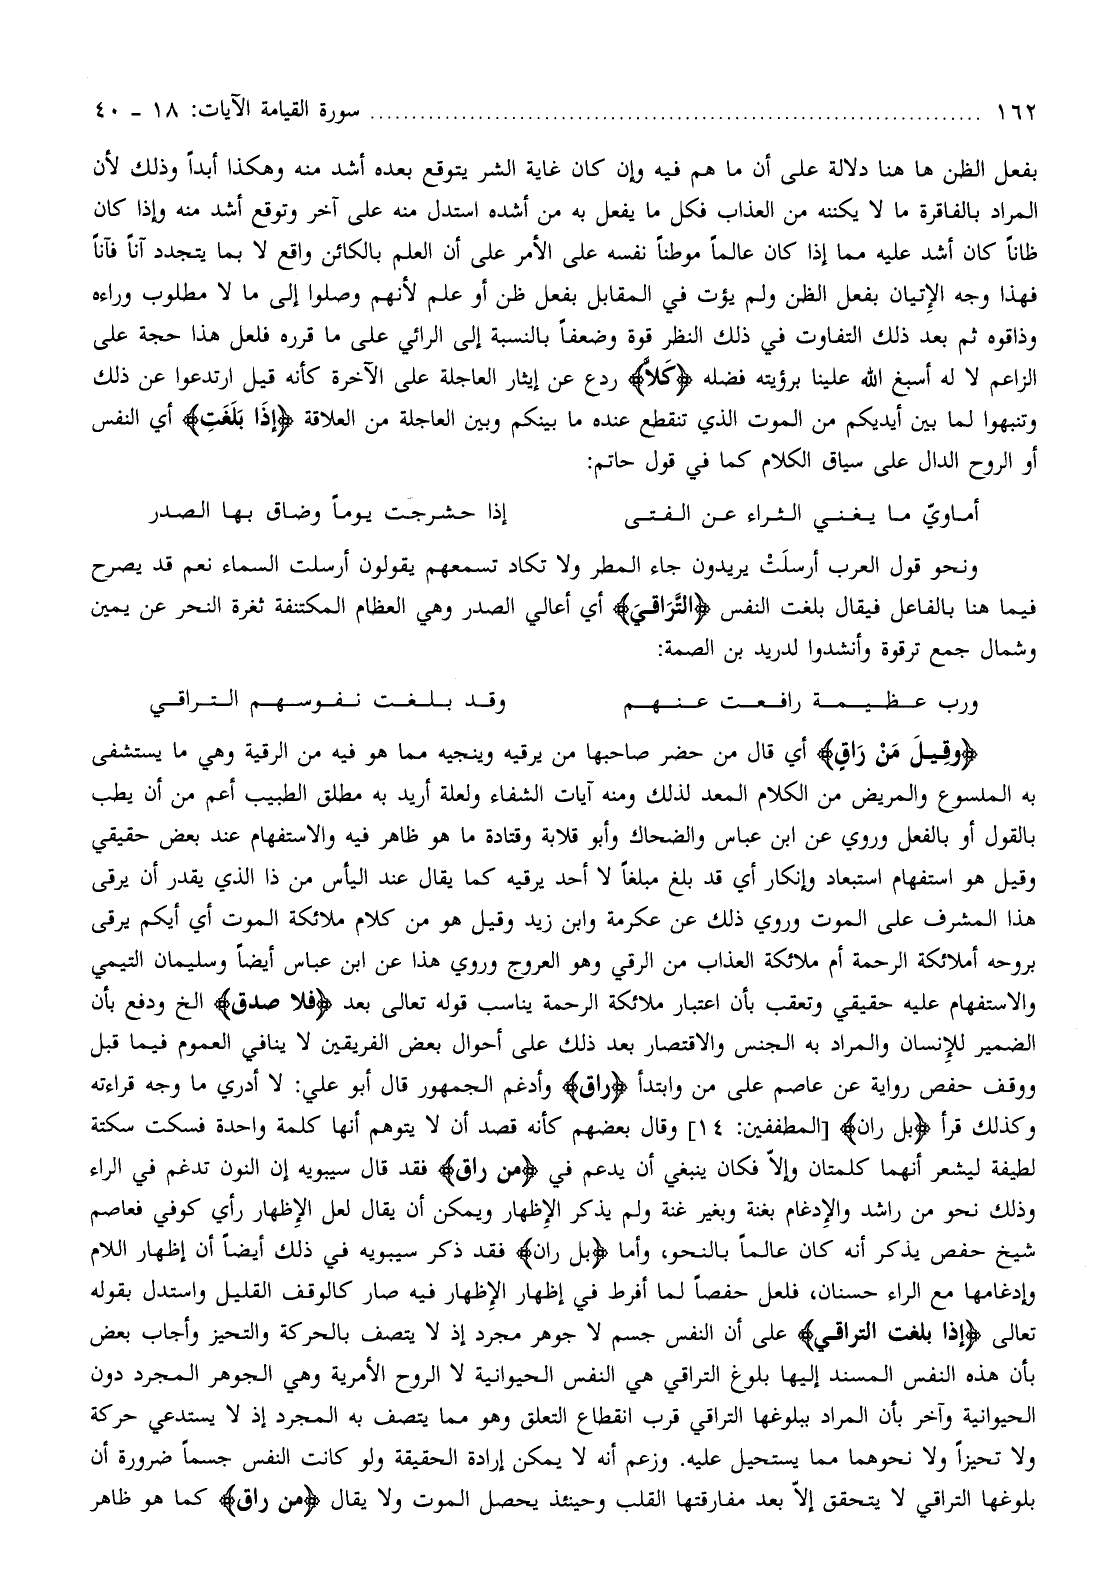 ١٦٢ ........................................ سورة القيامة الآيات: ١٨ - ٤٠
بفعل الظن ها هنا دلالة على أن ما هم فيه وإن كان غاية الشر يتوقع بعده أشد منه وهكذا أبداً وذلك لأن
المراد بالفاقرة ما لا يكتنه من العذاب فكل ما يفعل به من أشده استدل منه على آخر وتوقع أشد منه وإذا كان
ظاناً كان أشد عليه مما إذا كان عالماً موطناً نفسه على الأمر على أن العلم بالكائن واقع لا بما يتجدد آناً فآناً
فهذا وجه الإتيان بفعل الظن ولم يؤت في المقابل بفعل ظن أو علم لأنهم وصلوا إلى ما لا مطلوب وراءه
وذاقوه ثم بعد ذلك التفاوت في ذلك النظر قوة وضعفاً بالنسبة إلى الرائي على ما قرره فلعل هذا حجة على
الزاعم لا له أسبغ الله علينا برؤيته فضله ﴿كَلاَّ﴾ ردع عن إيثار العاجلة على الآخرة كأنه قيل ارتدعوا عن ذلك
وتنبهوا لما بين أيديكم من الموت الذي تنقطع عنده ما بينكم وبين العاجلة من العلاقة ﴿إذَا بَلَغَتِ﴾ أي النفس
أو الروح الدال على سياق الكلام كما في قول حاتم:
أماويّ ما يغني الثراء عن الفتى إذا حشرجت يوماً وضاق بها الصدر
ونحو قول العرب أرسلَتْ يريدون جاء المطر ولا تكاد تسمعهم يقولون أرسلت السماء نعم قد يصرح
فيما هنا بالفاعل فيقال بلغت النفس ﴿التَّرَاقيَ﴾ أي أعالي الصدر وهي العظام المكتنفة ثغرة النحر عن يمين
وشمال جمع ترقوة وأنشدوا لدريد بن الصمة:
ورب عظيمة رافعت عنهم وقد بلغت نفوسهم التراقي
﴿وقِيلَ مَنْ رَاقٍ﴾ أي قال من حضر صاحبها من يرقيه وينجيه مما هو فيه من الرقية وهي ما يستشفى
به الملسوع والمريض من الكلام المعد لذلك ومنه آيات الشفاء ولعلة أريد به مطلق الطبيب أعم من أن يطب
بالقول أو بالفعل وروي عن ابن عباس والضحاك وأبو قلابة وقتادة ما هو ظاهر فيه والاستفهام عند بعض حقيقي
وقيل هو استفهام استبعاد وإنكار أي قد بلغ مبلغاً لا أحد يرقيه كما يقال عند اليأس من ذا الذي يقدر أن يرقى
هذا المشرف على الموت وروي ذلك عن عكرمة وابن زيد وقيل هو من كلام ملائكة الموت أي أيكم يرقى
بروحه أملائكة الرحمة أم ملائكة العذاب من الرقي وهو العروج وروي هذا عن ابن عباس أيضاً وسليمان التيمي
والاستفهام عليه حقيقي وتعقب بأن اعتبار ملائكة الرحمة يناسب قوله تعالى بعد ﴿فلا صدق﴾ الخ ودفع بأن
الضمير للإنسان والمراد به الجنس والاقتصار بعد ذلك على أحوال بعض الفريقين لا ينافي العموم فيما قبل
ووقف حفص رواية عن عاصم على من وابتدأ ﴿راق﴾ وأدغم الجمهور قال أبو علي: لا أدري ما وجه قراءته
وكذلك قرأ ﴿بل ران﴾ [المطففين: ١٤] وقال بعضهم كأنه قصد أن لا يتوهم أنها كلمة واحدة فسكت سكتة
لطيفة ليشعر أنهما كلمتان وإلاّ فكان ينبغي أن يدعم في ﴿من راق﴾ فقد قال سيبويه إن النون تدغم في الراء
وذلك نحو من راشد والإدغام بغنة وبغير غنة ولم يذكر الإظهار ويمكن أن يقال لعل الإظهار رأي كوفي فعاصم
شيخ حفص يذكر أنه كان عالماً بالنحو، وأما ﴿بل ران﴾ فقد ذكر سيبويه في ذلك أيضاً أن إظهار اللام
وإدغامها مع الراء حسنان، فلعل حفصاً لما أفرط في إظهار الإظهار فيه صار كالوقف القليل واستدل بقوله
تعالى ﴿إذا بلغت التراقي﴾ على أن النفس جسم لا جوهر مجرد إذ لا يتصف بالحركة والتحيز وأجاب بعض
بأن هذه النفس المسند إليها بلوغ التراقي هي النفس الحيوانية لا الروح الأمرية وهي الجوهر المجرد دون
الحيوانية وآخر بأن المراد ببلوغها التراقي قرب انقطاع التعلق وهو مما يتصف به المجرد إذ لا يستدعي حركة
ولا تحيزاً ولا نحوهما مما يستحيل عليه. وزعم أنه لا يمكن إرادة الحقيقة ولو كانت النفس جسماً ضرورة أن
بلوغها التراقي لا يتحقق إلاّ بعد مفارقتها القلب وحينئذ يحصل الموت ولا يقال ﴿من راق﴾ كما هو ظاهر